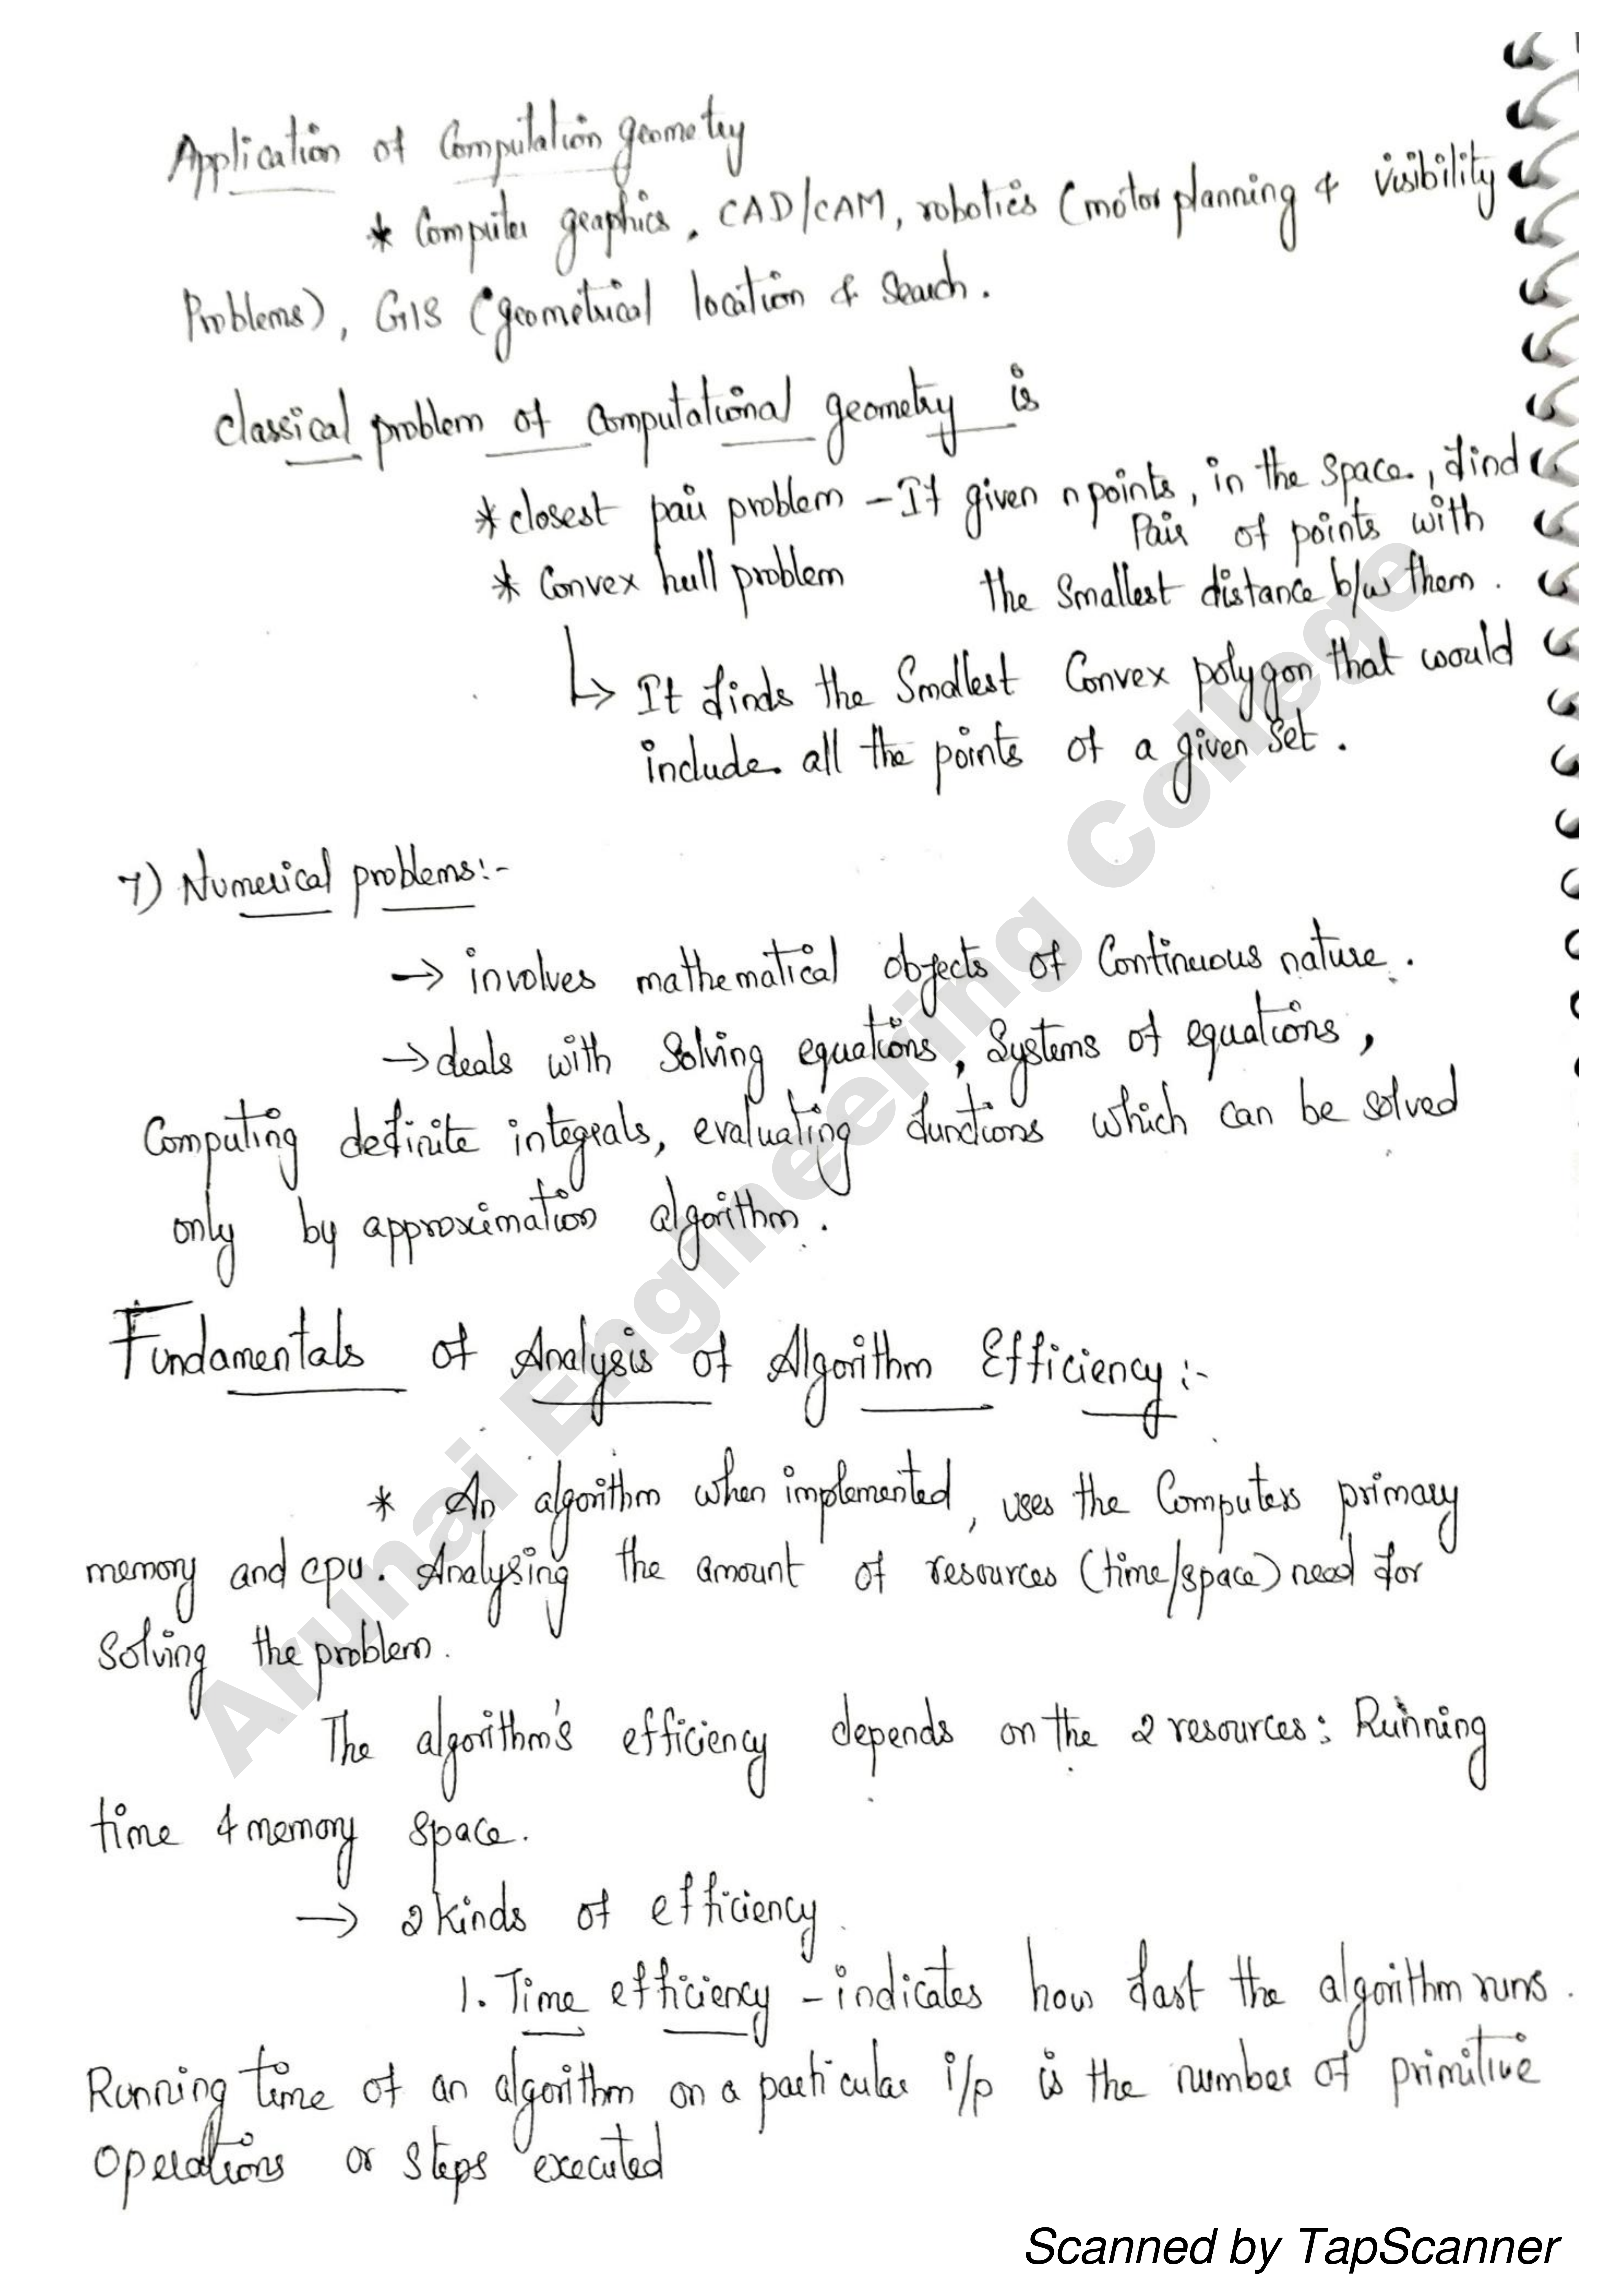 Application of Computation geometry
* Computer graphics, CAD/CAM, robotics (motor planning & visibility
Problems), GIS (geometrical location & Search.
Classical problem of Computational geometry is
* closest pair problem - If given n points, in the space, find
Pair of points with
* Convex hull problem the Smallest distance b/w them.
↳ It finds the Smallest Convex polygon that would
include all the points of a given Set.
7) Numerical problems:-
→ involves mathematical objects of Continuous nature.
→ deals with Solving equations, Systems of equations,
Computing definite integrals, evaluating functions which can be solved
only by approximation algorithm.
Fundamentals of Analysis of Algorithm Efficiency:-
* An algorithm when implemented, uses the Computers primary
memory and cpu. Analysing the amount of resources (time/space) need for
Solving the problem.
The algorithm's efficiency depends on the 2 resources: Running
time & memory space.
→ 2 kinds of efficiency
1. Time efficiency - indicates how fast the algorithm runs.
Running time of an algorithm on a particular i/p is the number of primitive
Operations or Steps executed
Arunai Engineering College
Scanned by TapScanner